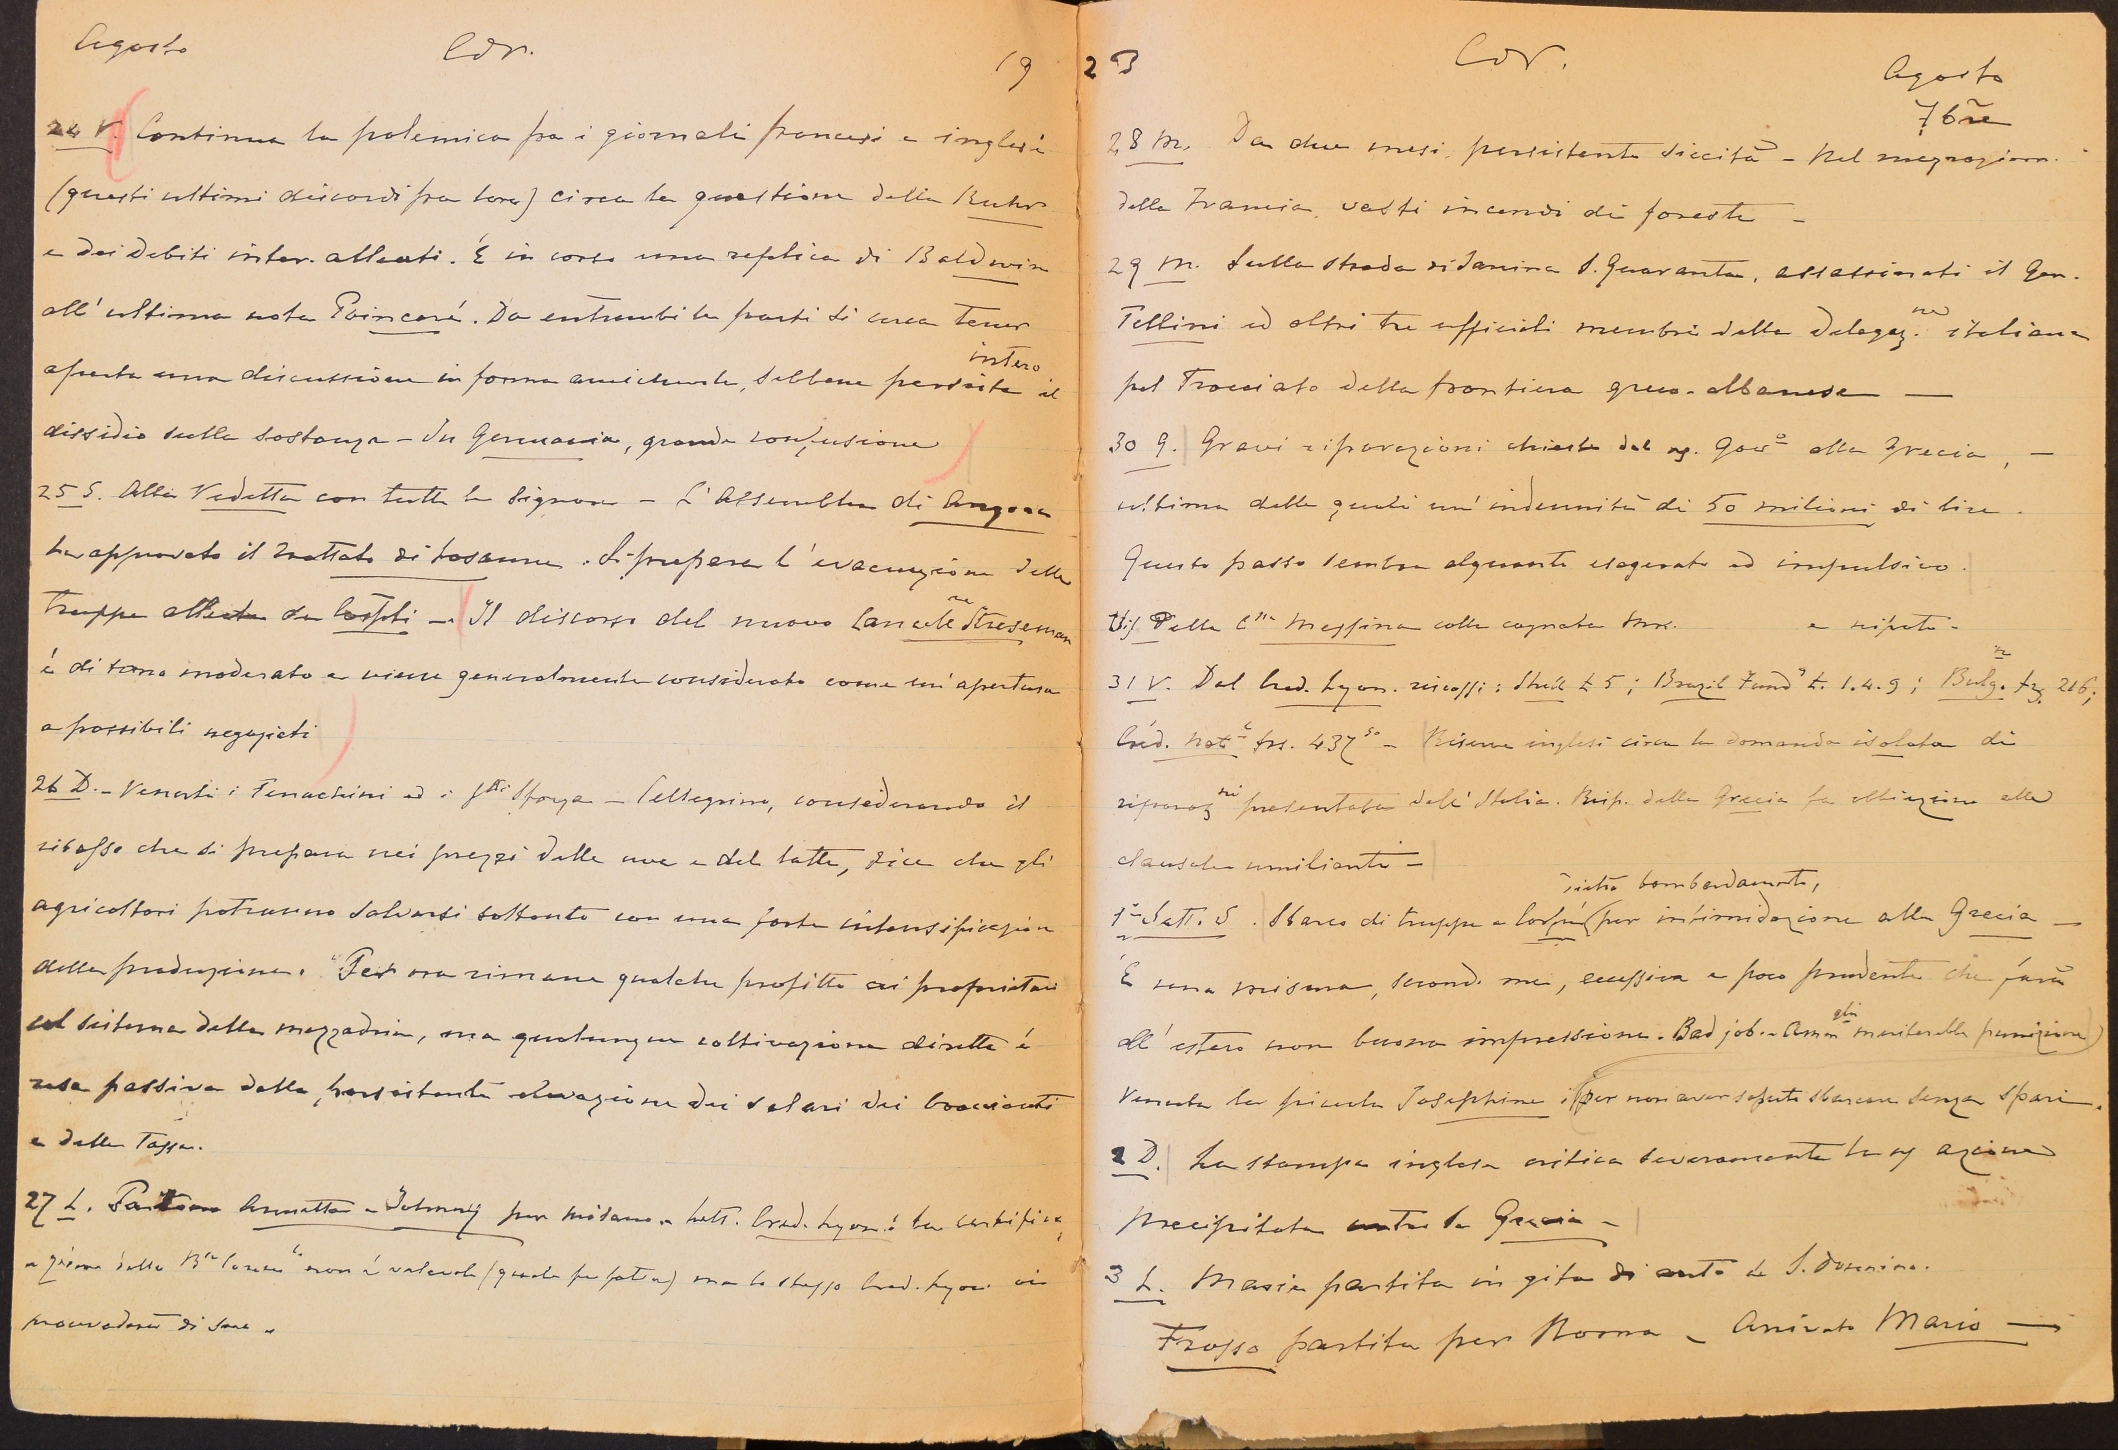 Agosto Cor. 19
24 V. Continua la polemica fra i giornali francesi e inglesi
(questi ultimi discordi fra loro) circa la questione della Ruhr
e dei Debiti inter-alleati. É in corso una replica di Baldwin
all'ultima nota Poincaré. Da entrambi le parti si cerca tener
aperta una discussione in forma amichevole, sebbene persista intero il
dissidio sulla sostanza – In Germania, grande confusione
25 S. Alla Vedetta con tutte le Signore – L'Assemblea di Angora
ha approvato il Trattato di Losanna. Si prepara l'evacuazione delle
truppe alleate da Cospli –. Il discorso del nuovo Cancelre Streseman
é di tono moderato e viene generalmente considerato come un'apertura
a possibili negoziati
26 D. – Venuti i Fenachini ed i Sforza – Pellegrino, considerando il
ribasso che si prepara nei prezzi delle uve e del latte, dice che gli
agricoltori potranno salvarsi soltanto con una forte intensificazion
della produzione. "Per ora rimane qualche profitto ai proprietari
col sistema della mezzadria, ma qualunque coltivazione diretta é
resa passiva dalla persistente elevazione dei salari dei braccianti
e dalle Tasse.
27 L. Annetta e Johnny per Misano. lett. Cred. Lyon.: la certifica,
non é valevole (quale fu fatta) ma lo stesso Cred. Lyon. vi
provvederà di
23 Cor. Agosto
7bre
28 M. Da due mesi, persistente siccità – Nel mezzogiorn.
della Francia, vasti incendi di foreste –
29 M. Sulla strada di Janina S. Quaranta, assassinati il Gen.
Tellini ed altri tre ufficiali membri della Delegazne italiana
pel Tracciato della frontiera greco-albanese —
30 G. Gravi riparazioni chieste dal ns. Govo alla Grecia, –
ultima delle quali un'indennità di 50 milioni di lire.
Questo passo sembra alquanto esagerato ed impulsivo.
Vis. Della Cssa Messina colla cognata e nipote –
31 V. Dal Cred. Lyon. riscossi: £ 5; Brazil Fundg £. 1.4.9; Bulg.re frs. 216;
Créd. Natl frs. 437 50 – Riserve inglesi circa la domanda isolata di
riparazni presentata dall'Italia. Risp. della Grecia fa obbiezione alle
clausole umilianti –
1° Sett. S. Sbarco di truppe a Corfù (dietro bombardamento, per intimidazione alla Grecia –
É una misura, second. me, eccessiva e poco prudente che farà
all'estero non buona impressione. Bad job. – Ammglio meriterebbe punizione)
Venuta la piccola Josephine (per non aver saputo sbarcare senza spari.
2 D. La stampa inglese critica severamente la ns azione
precipitata contro la Grecia –
3 L. Maria partita in gita di auto
partita per Roma – Arrivato Mario —